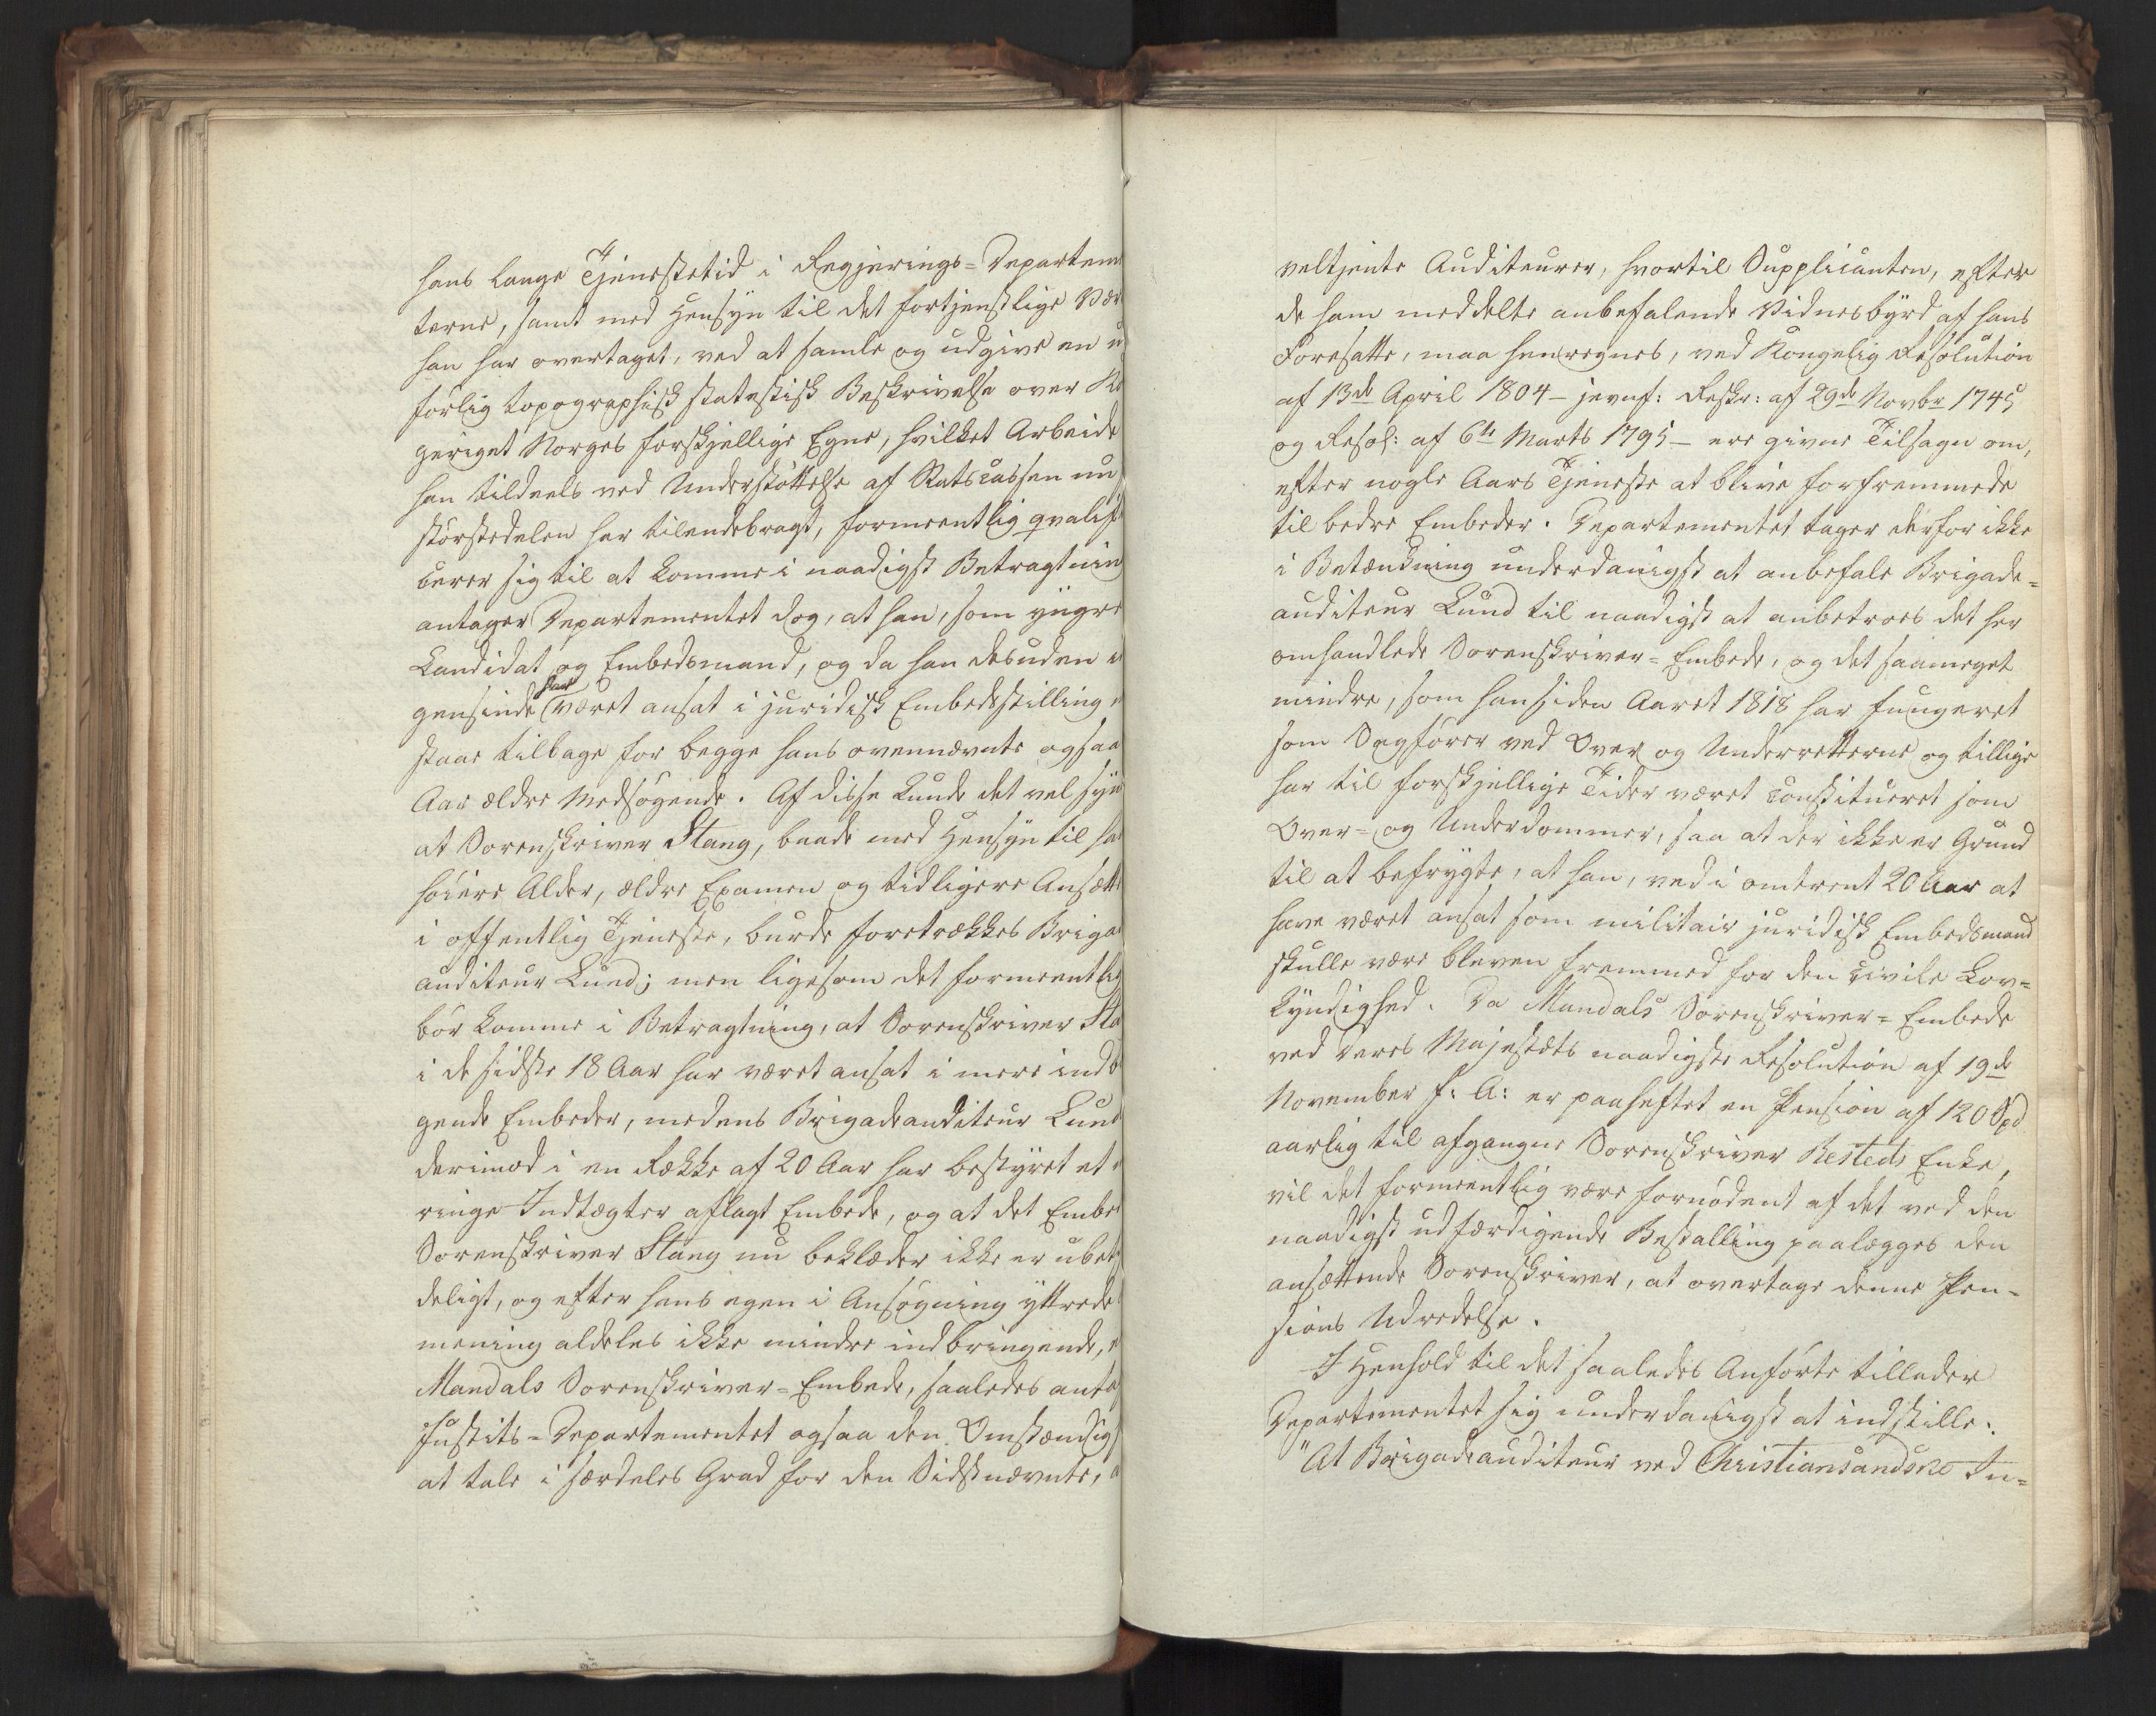 hans lange Tjenestetid i Regjerings-Departemen
terne, samt med Hensyn til det fortjenstlige Vær
han har overtaget, ved at samle og udgive en u
førlig topographisk statistisk Beskrivelse over Ko
geriget Norges forskjellige Egne, hvilket Arbeide
han tildeels ved Understøttelse af Statscassen nu
størstedelen har tilendebragt, formeentlig qvalifi
cerer sig til at komme i naadigst Betragtnin
antager Departementet dog, at han, som yngre
Candidat og Embedsmand, og da han desuden i
gensinde har været ansat i juridisk Embedsstilling
staae tilbage for begge hans ovennævnte ogsaa
Aar ældre Medsøgende. Af disse kunde det vel syn
at Sorenskriver Stang, baade med Hensyn til ha
høiere Alder, ældre Examen og tidligere Ansætte
i offentlig Tjeneste, burde foretrækkes Briga
auditeur Lund; men ligesom det formeentlig
bør komme i Betragtning, at Sorenskriver Sta
i de sidste 18 Aar har været ansat i mere indb
gende Embeder, medens Brigadeauditeur Lund
derimod i en Række af 20 Aar har bestyret et
ringe Indtægter aflagt Embede, og at det Embe
Sorenskriver Stang nu beklæder ikke er ubet
deligt, og efter hans egen i Ansøgning yttrede
mening aldeles ikke mindre indbringende, e
Mandals Sorenskriver-Embede, saaledes anta
Justits-Departementet ogsaa den Omstændig
at tale i særdeles Grad for den Sidstnævnte, a
veltjente Auditeurer, hvortil Supplicanten, efter
de ham meddelte anbefalende Vidnesbyrd af hans
Foresatte, maa henregnes, ved Kongelig Resolution
af 13de April 1804 – jevnf: Reskr: af 29de Novbr 1745
og Resol: af 6te Marts 1795 – ere givne Tilsagn om,
efter nogle Aars Tjeneste at blive forfremmede
til bedre Embeder. Departementet tager derfor ikke
i Betænkning underdanigst at anbefale Brigade-
auditeur Lund til naadigst at anbetroes det her
omhandlede Sorenskriver-Embede, og det saameget
mindre, som han siden Aaret 1818 har fungeret
som Sagfører ved Over og Underretterne og tillige
har til forskjellige Tider været constitueret som
Over- og Underdommer, saa at der ikke er Grund
til at befrygte, at han, ved i omtrent 20 Aar at
have været ansat som militair juridisk Embedsmand
skulle være bleven fremmed for den civile Lov-
kyndighed. Da Mandals Sorenskriver-Embede
ved Deres Majestæts naadigste Resolution af 19de
November f: A: er paaheftet en Pension af 120 Spd
aarlig til afgangne Sorenskriver Resteds Enke,
vil det formeentlig være fornødent at det ved den
naadigst udfærdigende Bestalling paalægges den
ansættende Sorenskriver, at overtage denne Pen-
sions Udredelse.
I Henhold til det saaledes Anførte tillader
Departementet sig underdanigst at indstille:
"At Brigadeauditeur ved Christiansandske In-